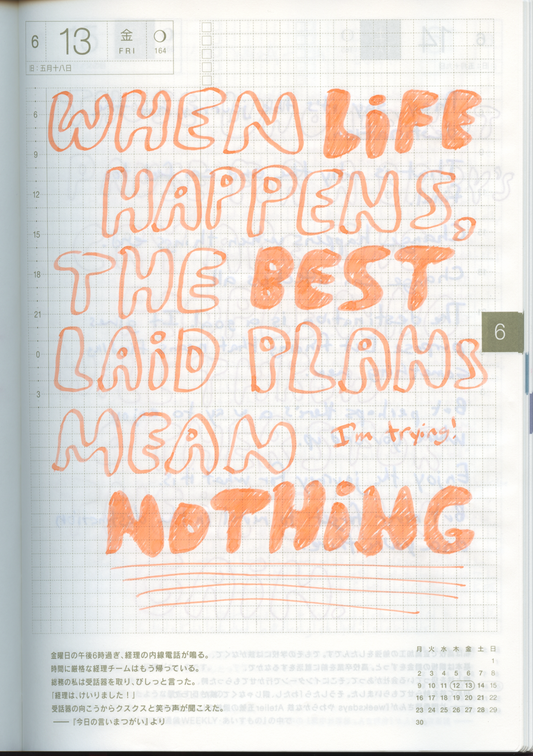 6 13 金 FRI 164
旧 五月十八日
WHEN LiFE
HAPPENS,
THE BEST
LAiD PLANS
MEAN I'm trying!
NOTHiNG
6
9
12
15
18
21
0
3
6
金曜日の午後6時過ぎ、経理の内線電話が鳴る。
時間に厳格な経理チームはもう帰っている。
総務の私は受話器を取り、びしっと言った。
「経理は、けいりました!」
受話器の向こうからクスクスと笑う声が聞こえた。
──『今日の言いまつがい』より
月 火 水 木 金 土 日
1
2 3 4 5 6 7 8
9 10 11 12 13 14 15
16 17 18 19 20 21 22
23 24 25 26 27 28 29
30